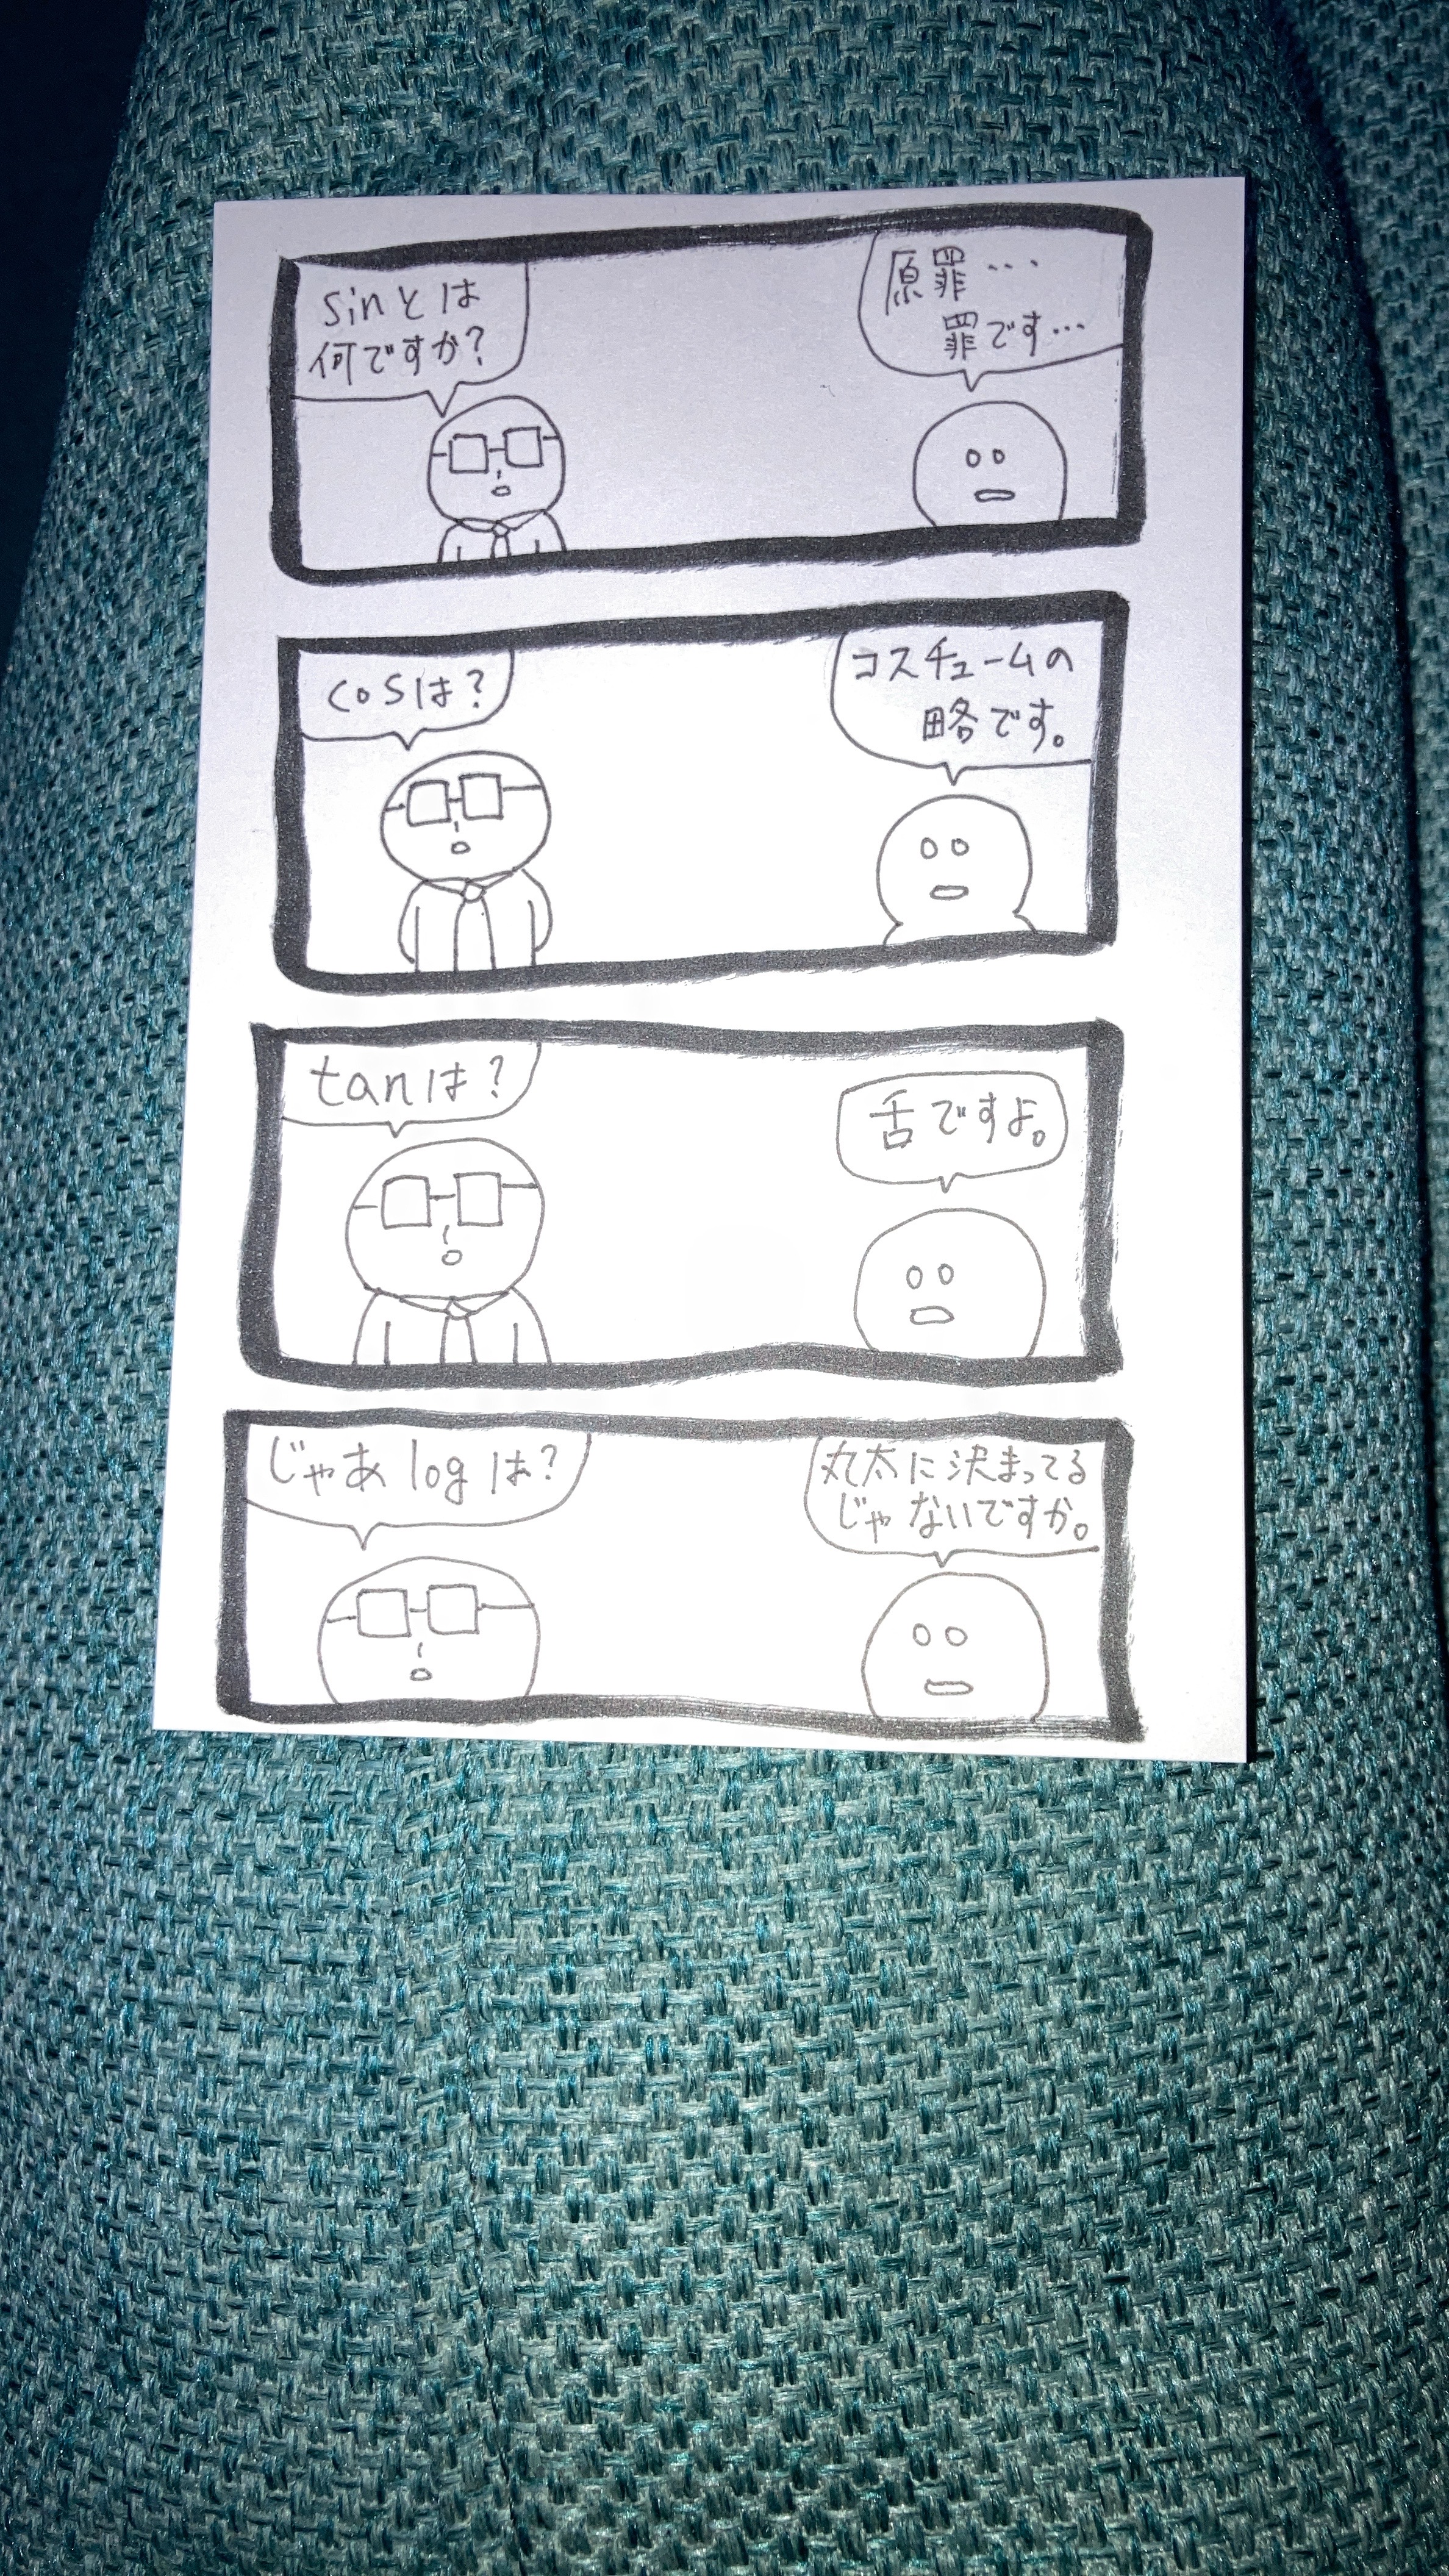 sinとは
何ですか?
原罪・・・
罪です・・・
cosは?
コスチュームの
略です。
tanは?
舌ですよ。
じゃあlogは?
丸太に決まってる
じゃないですか。